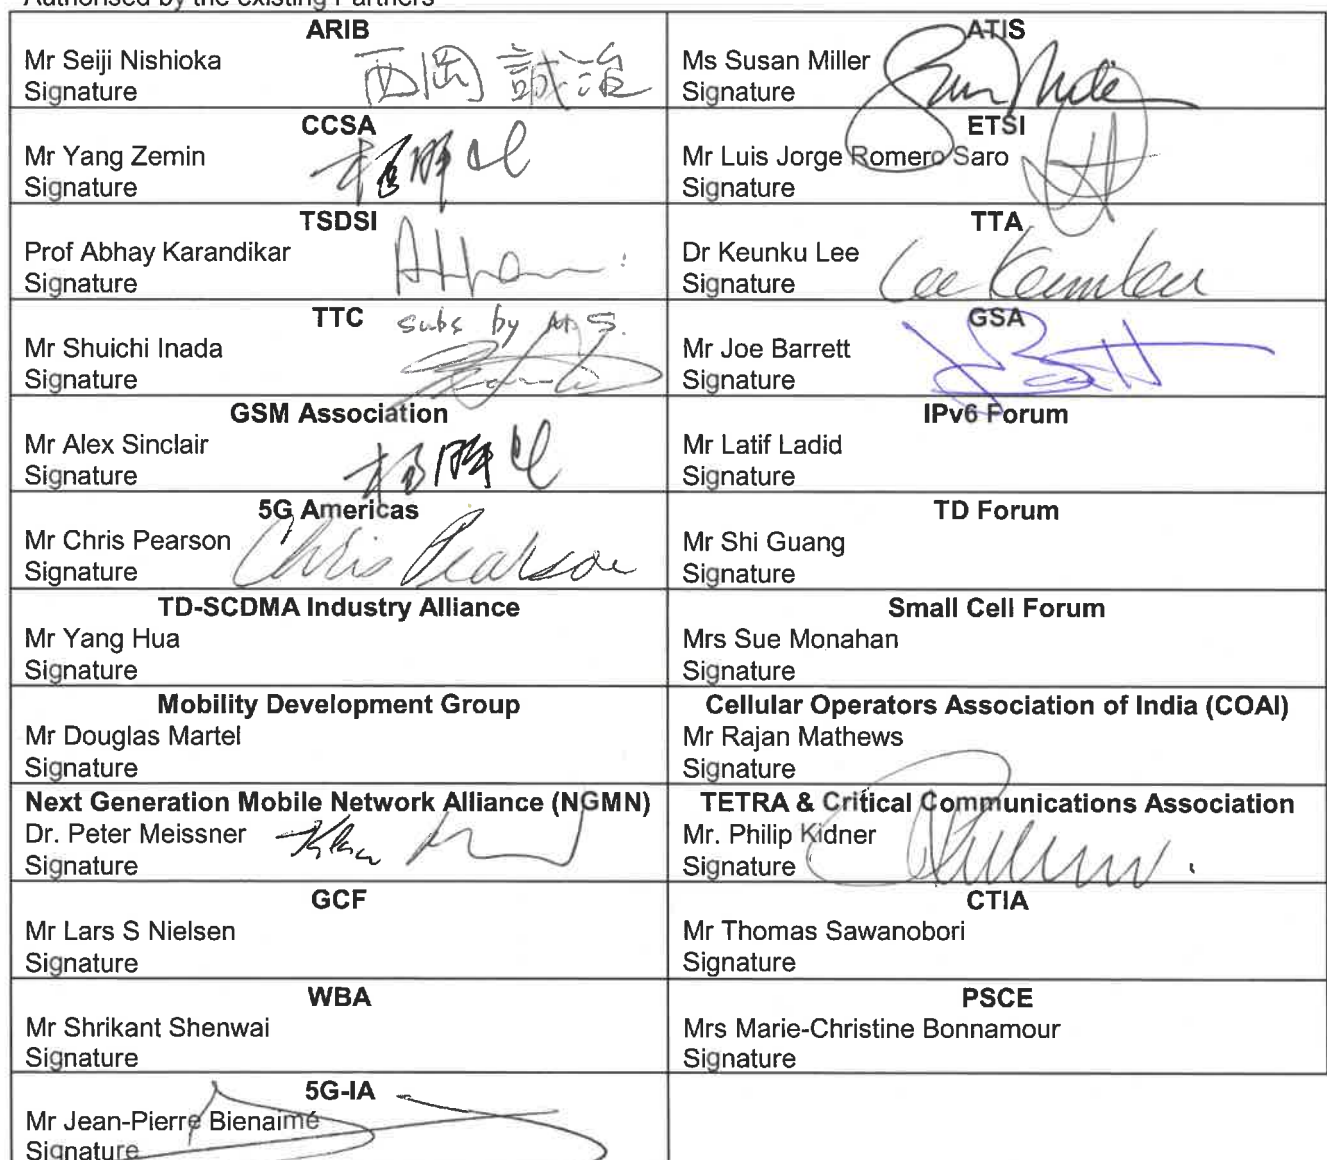 Authorised by the existing Partners
ARIB
Mr Seiji Nishioka
Signature 西岡 誠治
ATIS
Ms Susan Miller
Signature
CCSA
Mr Yang Zemin
Signature
ETSI
Mr Luis Jorge Romero Saro
Signature
TSDSI
Prof Abhay Karandikar
Signature
TTA
Dr Keunku Lee
Signature Lee Keunku
TTC subs by
Mr Shuichi Inada
Signature
GSA
Mr Joe Barrett
Signature
GSM Association
Mr Alex Sinclair
Signature
IPv6 Forum
Mr Latif Ladid
Signature
5G Americas
Mr Chris Pearson
Signature Chris Pearson
TD Forum
Mr Shi Guang
Signature
TD-SCDMA Industry Alliance
Mr Yang Hua
Signature
Small Cell Forum
Mrs Sue Monahan
Signature
Mobility Development Group
Mr Douglas Martel
Signature
Cellular Operators Association of India (COAI)
Mr Rajan Mathews
Signature
Next Generation Mobile Network Alliance (NGMN)
Dr. Peter Meissner
Signature
TETRA & Critical Communications Association
Mr. Philip Kidner
Signature
GCF
Mr Lars S Nielsen
Signature
CTIA
Mr Thomas Sawanobori
Signature
WBA
Mr Shrikant Shenwai
Signature
PSCE
Mrs Marie-Christine Bonnamour
Signature
5G-IA
Mr Jean-Pierre Bienaimé
Signature